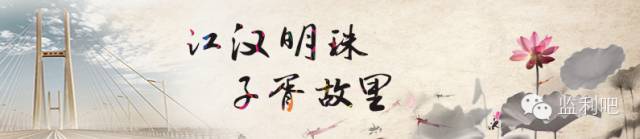 江汉明珠
子胥故里
监利吧